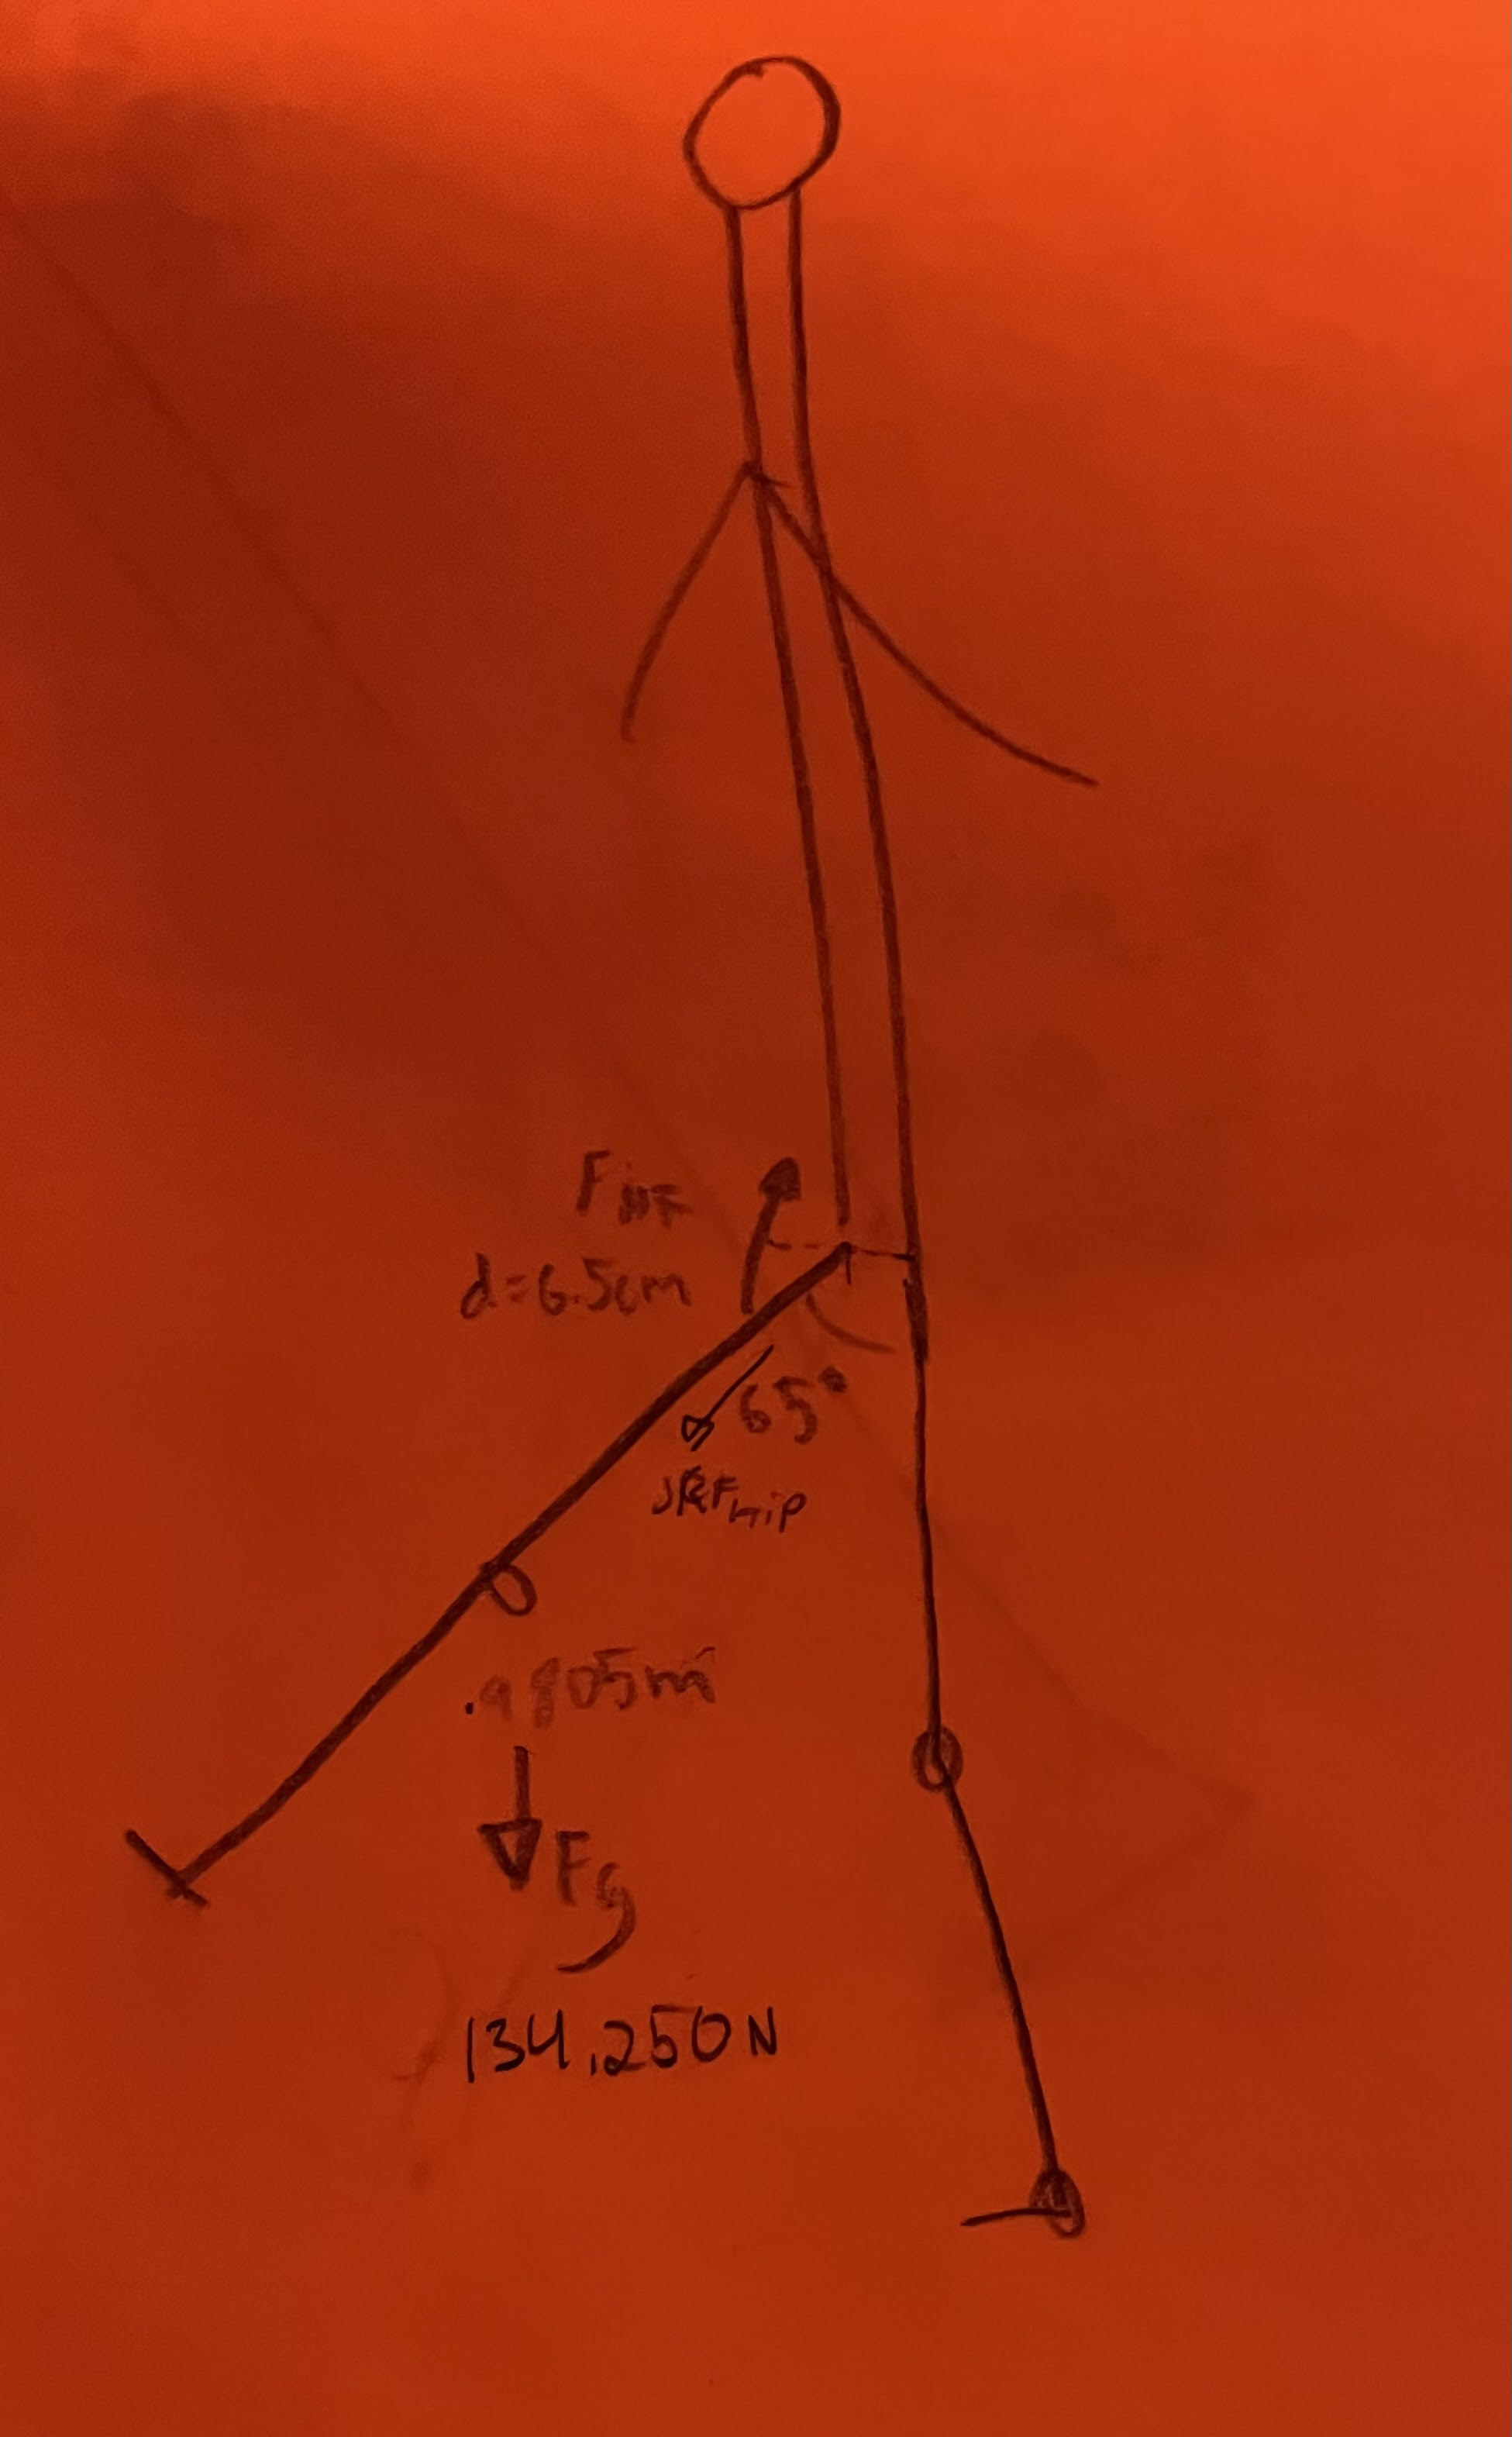 d=6.5cm
65°
JRFhip
.9805m
Fg
134.250N